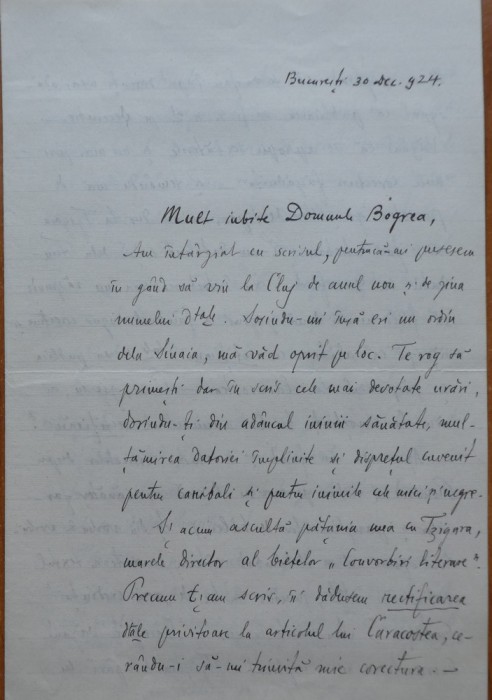 București 30 Dec. 924.
Mult iubite Domnule Bogrea,
Am întârziat cu scrisul, pentrucă-mi pusesem
în gând să viu la Cluj de anul nou și de ziua
numelui dtale. Sosindu-mi însă eri un ordin
dela Sinaia, mă văd oprit pe loc. Te rog să
primești dar în scris cele mai devotate urări,
dorindu-ți din adâncul inimii sănătate, mul-
țămirea datoriei împlinite și disprețul cuvenit
pentru canibali și pentru inimile cele mici și negre.
Și acum ascultă pățania mea cu Tzigara,
marele director al bietelor „Convorbiri literare".
Precum ți-am scris, îi dădusem rectificarea
dtale privitoare la articolul lui Caracostea, ce-
rându-i să-mi trimită mie corectura. —